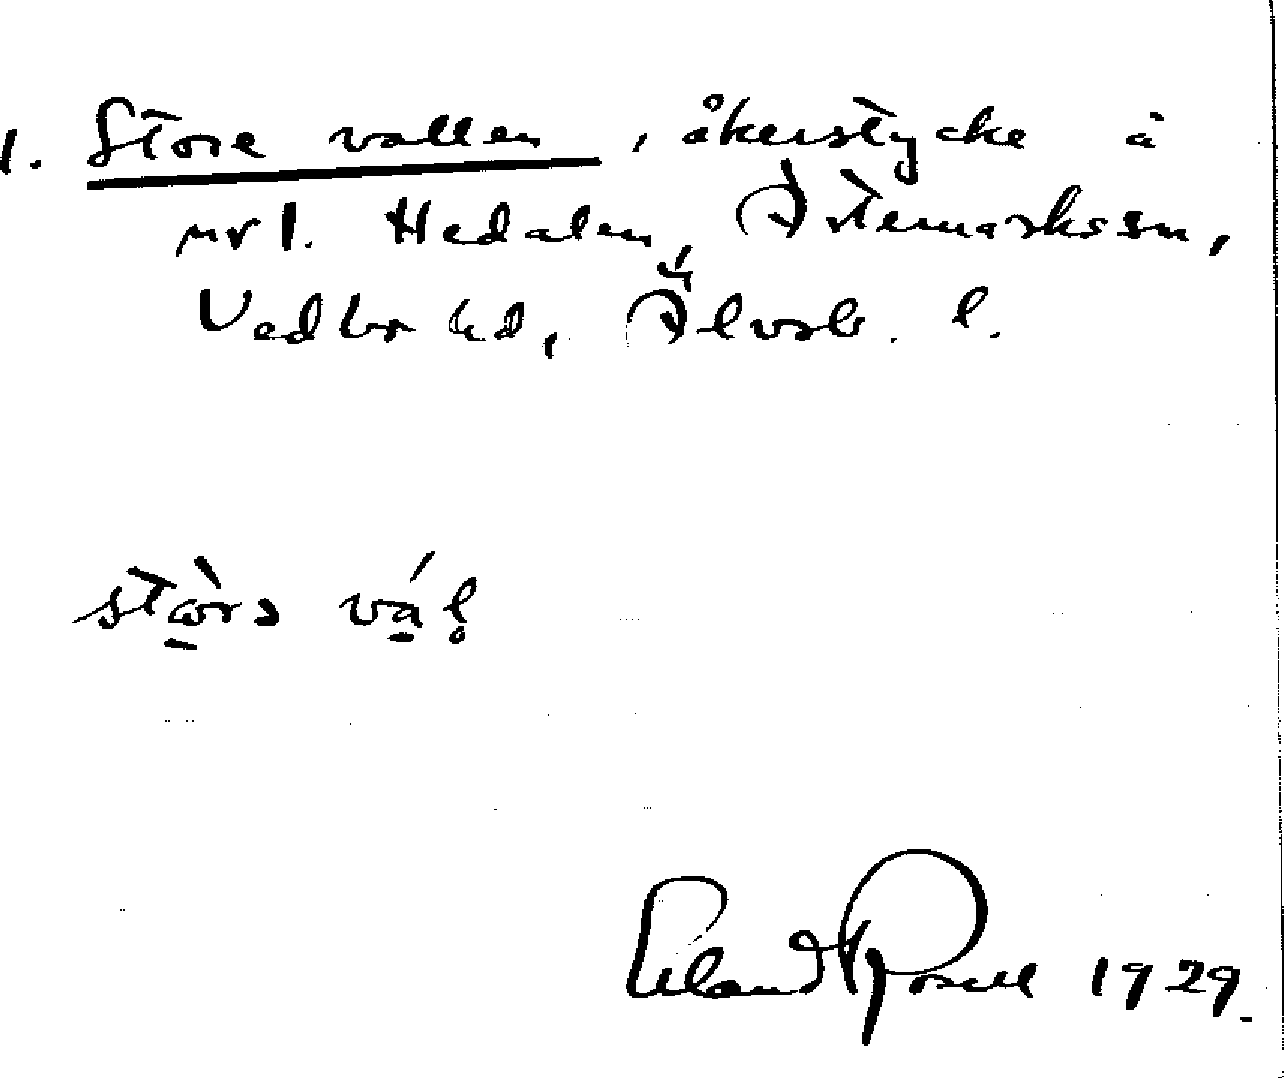 1. Store vallen, åkerstycke å
nr 1. Hedalen, Ärtemarks sn,
Vedbo hd, Älvsb. l.
stòrə vál̥
Erland Rosell 1929.